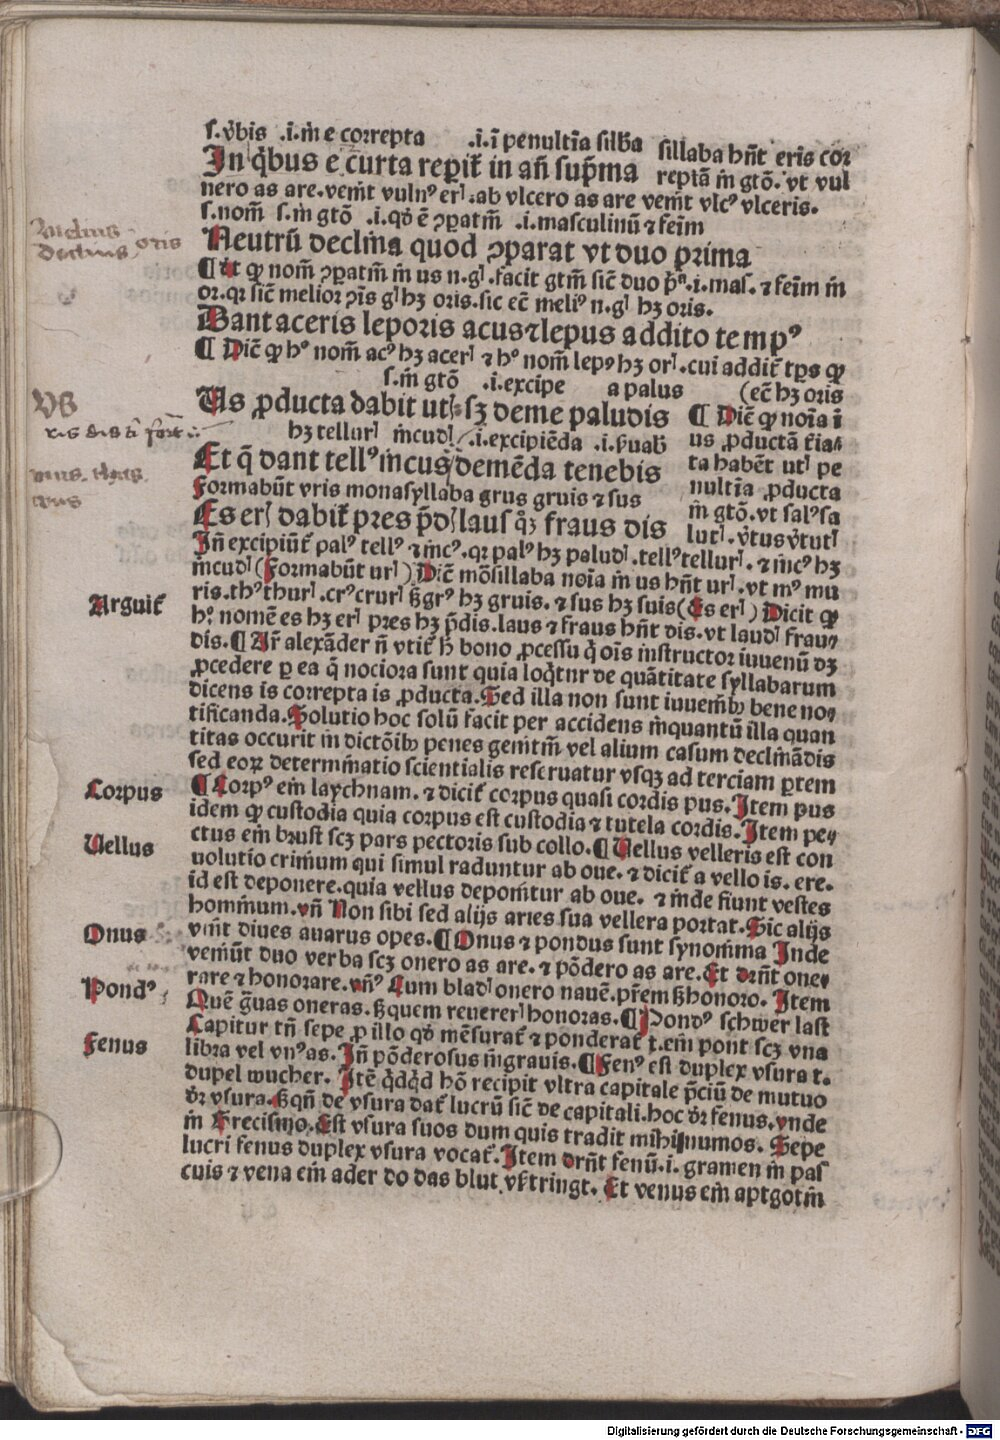 s. v̄bis .i. in e correpta .i. ī penultīa silƀa sillaba hn̄t eris cor
In q̄bus e curta reꝑit̄ in an̄ sup̄ma reptā in gtō. vt vul
nero as are. venit vulnꝰ erꝭ. ab vlcero as are venit vlcꝰ vlceris.
s. nom̄ s. in gtō .i. qđ ē ꝯꝑatm̄ .i. masculinū ⁊ feīm
Neutrū declina quod ꝯparat vt duo prima
nom̄ ꝯꝑatm̄ in us n. gꝭ. facit gtm̄ sic̄ duo .i. mas. ⁊ feīm in
or. qꝛ sic̄ melior ꝯīs gꝭ hꝫ oris. sic ec̄ meliꝰ n. gꝭ hꝫ oris.
Dant aceris leporis acus ⁊ lepus addito tempꝰ
¶ Dic̄ ꝙ hº nom̄ acꝰ hꝫ acerꝭ ⁊ hº nom̄ lepꝰ hꝫ orꝭ. cui addit̄ tꝑs ꝙ
s. in gtō .i. excipe a palus (ec̄ hꝫ oris
Us ꝓducta dabit utꝭ sꝫ deme paludis ¶ Dic̄ ꝙ noīa ī
hꝫ tellurꝭ incudꝭ .i. excipiēda us ꝓductā
Et q̄ dant tellꝰ incus demēda tenebis ta habēt utꝭ pe
Formabūt vris monasyllaba grus gruis ⁊ sus nultīa ꝓducta
Es erꝭ dabit̄ pres p̄dꝭ laus fraus dis in gtō. vt salꝰ sa
lutꝭ. v̄tus v̄tutꝭ
In̄ excipiūt̄ palꝰ tellꝰ ⁊ incꝰ. qꝛ palꝰ hꝫ paludꝭ. tellꝰ tellurꝭ. ⁊ incꝰ hꝫ
incudꝭ (Formabūt urꝭ) Dic̄ mōsillaba noīa in us hn̄t urꝭ. vt mꝰ mu
ris. thꝰ thurꝭ. crꝰ crurꝭ grꝰ hꝫ gruis. ⁊ sus hꝫ suis (Es erꝭ) Dicit ꝙ
Arguit̄
hº nomē es hꝫ erꝭ pres hꝫ p̄dis. laus ⁊ fraus hn̄t dis. vt laudꝭ frau⸗
dis. ¶ Ar̄ alexāder n̄ vtit̄ bono ꝓcessu q̄ oīs instructor iuuenū dꝫ
ꝓcedere ꝑ ea q̄ nociora sunt quia loq̄tur de quātitate syllabarum
dicens is correpta is ꝓducta. Sed illa non sunt bene no⸗
tificanda. Solutio hoc solū facit per accidens inquantū illa quan
titas occurit in dictōibꝫ penes genitm̄ vel alium casum declinādis
sed eoꝝ determinatio scientialis reseruatur vsqꝫ ad terciam ꝑtem
Corpus
¶ Corpꝰ em̄ laychnam. ⁊ dicit̄ corpus quasi cordis pus. Item pus
idem ꝙ custodia quia corpus est custodia ⁊ tutela cordis. Item pe⸗
ctus em̄ brust scꝫ pars pectoris sub collo. ¶ Vellus velleris est con
Vellus
uolutio crinium qui simul raduntur ab oue. ⁊ dicit̄ a vello is. ere.
id est deponere. quia vellus deponitur ab oue. ⁊ inde fiunt vestes
hominum. vn̄ Non sibi sed alijs aries sua vellera portat. Sic alijs
Onus
diues auarus opes. ¶ Onus ⁊ pondus sunt synonima Inde
veniūt duo verba scꝫ onero as are. ⁊ pōdero as are. Et drn̄t one⸗
rare ⁊ honorare. vn̄ꝰ Cum bladꝭ onero nauē. pr̄em honoro. Item
Pondꝰ
Quē oneras. quem reuererꝭ honoras. ¶ Pondꝰ schwer last
Capitur tn̄ sepe ꝓ illo qđ mēsurat̄ ⁊ ponderat̄ t. em̄ pont scꝫ vna
Fenus
libra vel vnꝰ as. In̄ pōderosus ingrauis. ¶ Fenꝰ est duplex vsura t.
dupel wucher. Itē q̄dq̄d hō recipit vltra capitale p̄ciū de mutuo
dr̄ vsura. de vsura dat̄ lucrū sic̄ de capitali. hoc dr̄ fenus. vnde
in Grecismo. Est vsura suos dum quis tradit mihi numos. Sepe
lucri fenus duplex vsura vocat̄. Item drn̄t fenū. i. gramen in pas
cuis ⁊ vena em̄ ader do das blut. Et venus em̄ aptgotin
Digitalisierung gefördert durch die Deutsche Forschungsgemeinschaft - DFG